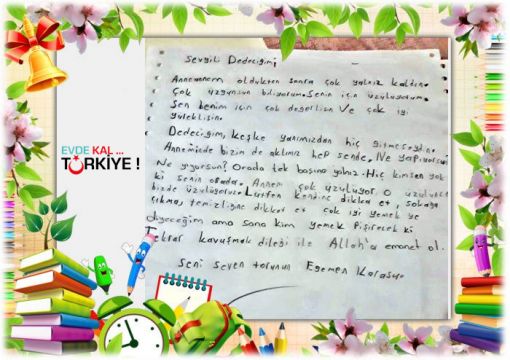 EVDE KAL ...
TÜRKİYE !
Sevgili Dedeciğim;
Anneannem öldükten sonra çok yalnız kaldın.
Çok üzgünsün biliyorum. Senin için üzülüyorum.
Sen benim için çok değerlisin Ve çok iyi
yüreklisin.
Dedeciğim, keşke yanımızdan hiç gitmeseydin.
Annemin de bizim de aklımız hep sende. Ne yapıyorsun
Ne yiyorsun? Orada tek başına yalnız. Hiç kimsen yok
ki senin orada. Annem çok üzülüyor. O üzülünce
bizde üzülüyoruz. Lütfen kendine dikkat et, sokağa
çıkma, temizliğine dikkat et çok iyi yemek ye
diyeceğim ama sana kim yemek Pişirecek ki
Tekrar kavuşmak dileği ile Allah'a emanet ol.
Seni seven torunun Egemen Karasu